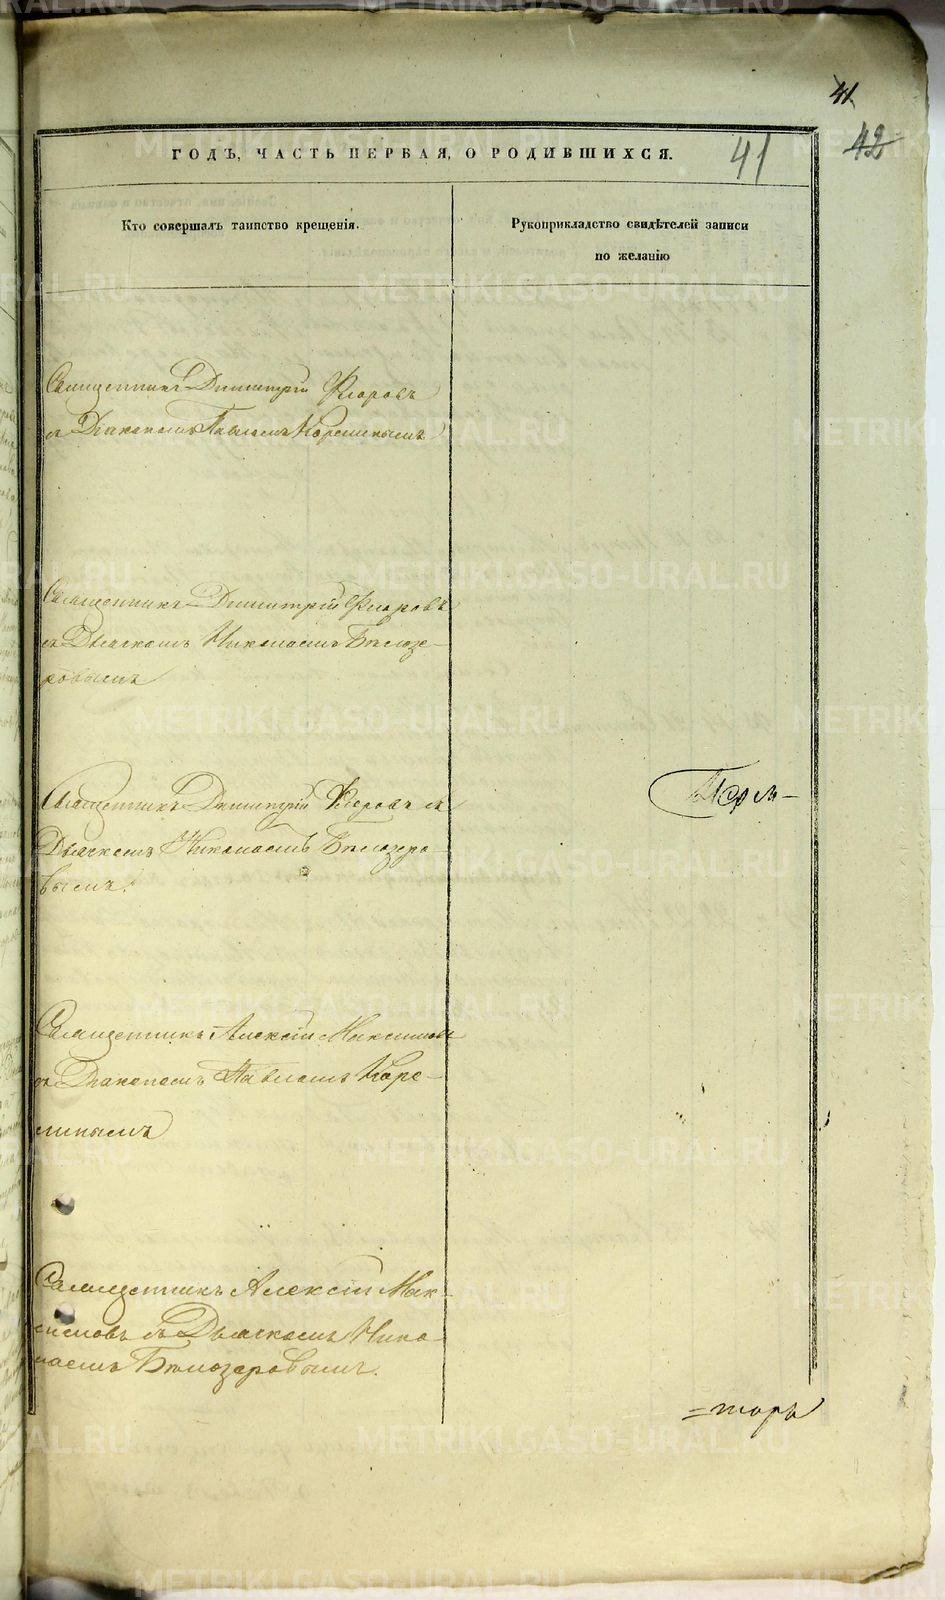 41
42
41
ГОДЪ, ЧАСТЬ ПЕРВАЯ, О РОДИВШИХСЯ.
Кто совершалъ таинство крещенія.
Рукоприкладство свидѣтелей записи
по желанію
Священникъ Димитрій Флоровъ
съ Діакономъ Павломъ Корелинымъ
Священникъ Димитрій Флоровъ
съ Дьячкомъ Николаемъ Бѣлозе-
ровымъ
Священникъ Димитрій Флоровъ съ
Дьячкомъ Николаемъ Бѣлозеро-
вымъ.
Священникъ Алексій Максимовъ
съ Діакономъ Павломъ Коре-
линымъ
Священникъ Алексій Мак-
симовъ съ Дьячкомъ Нико-
лаемъ Бѣлозеровымъ.
METRIKI.GASO-URAL.RU